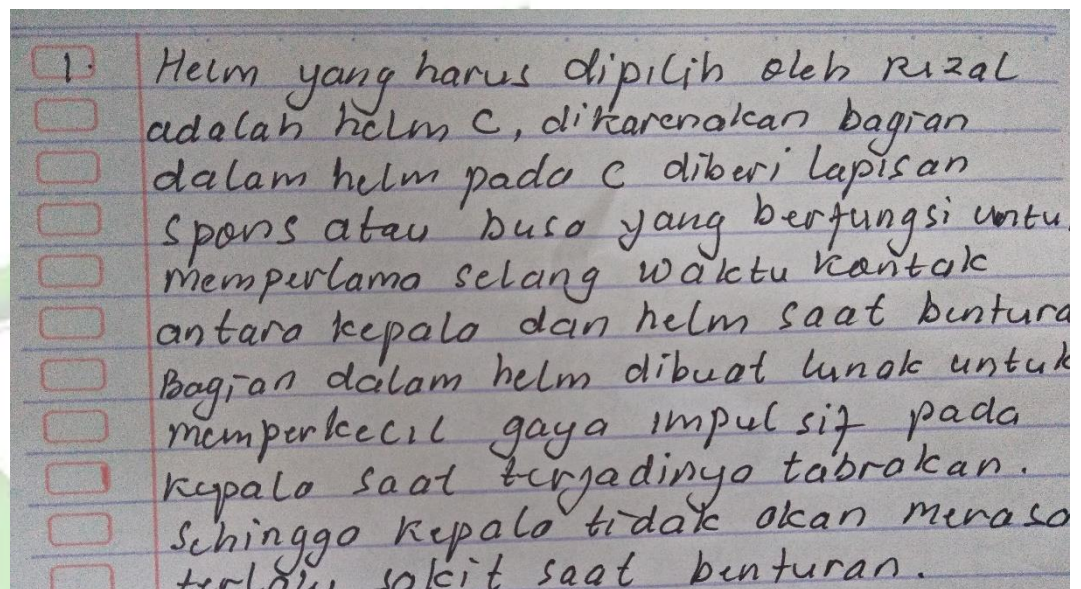 1. Helm yang harus dipilih oleh Rizal
adalah helm C, dikarenakan bagian
dalam helm pada C diberi lapisan
spons atau busa yang berfungsi untu
memperlama selang waktu kontak
antara kepala dan helm saat bentura
Bagian dalam helm dibuat lunak untuk
memperkecil gaya impulsif pada
kepala saat terjadinya tabrakan.
Sehingga kepala tidak akan merasa
terlalu sakit saat benturan.